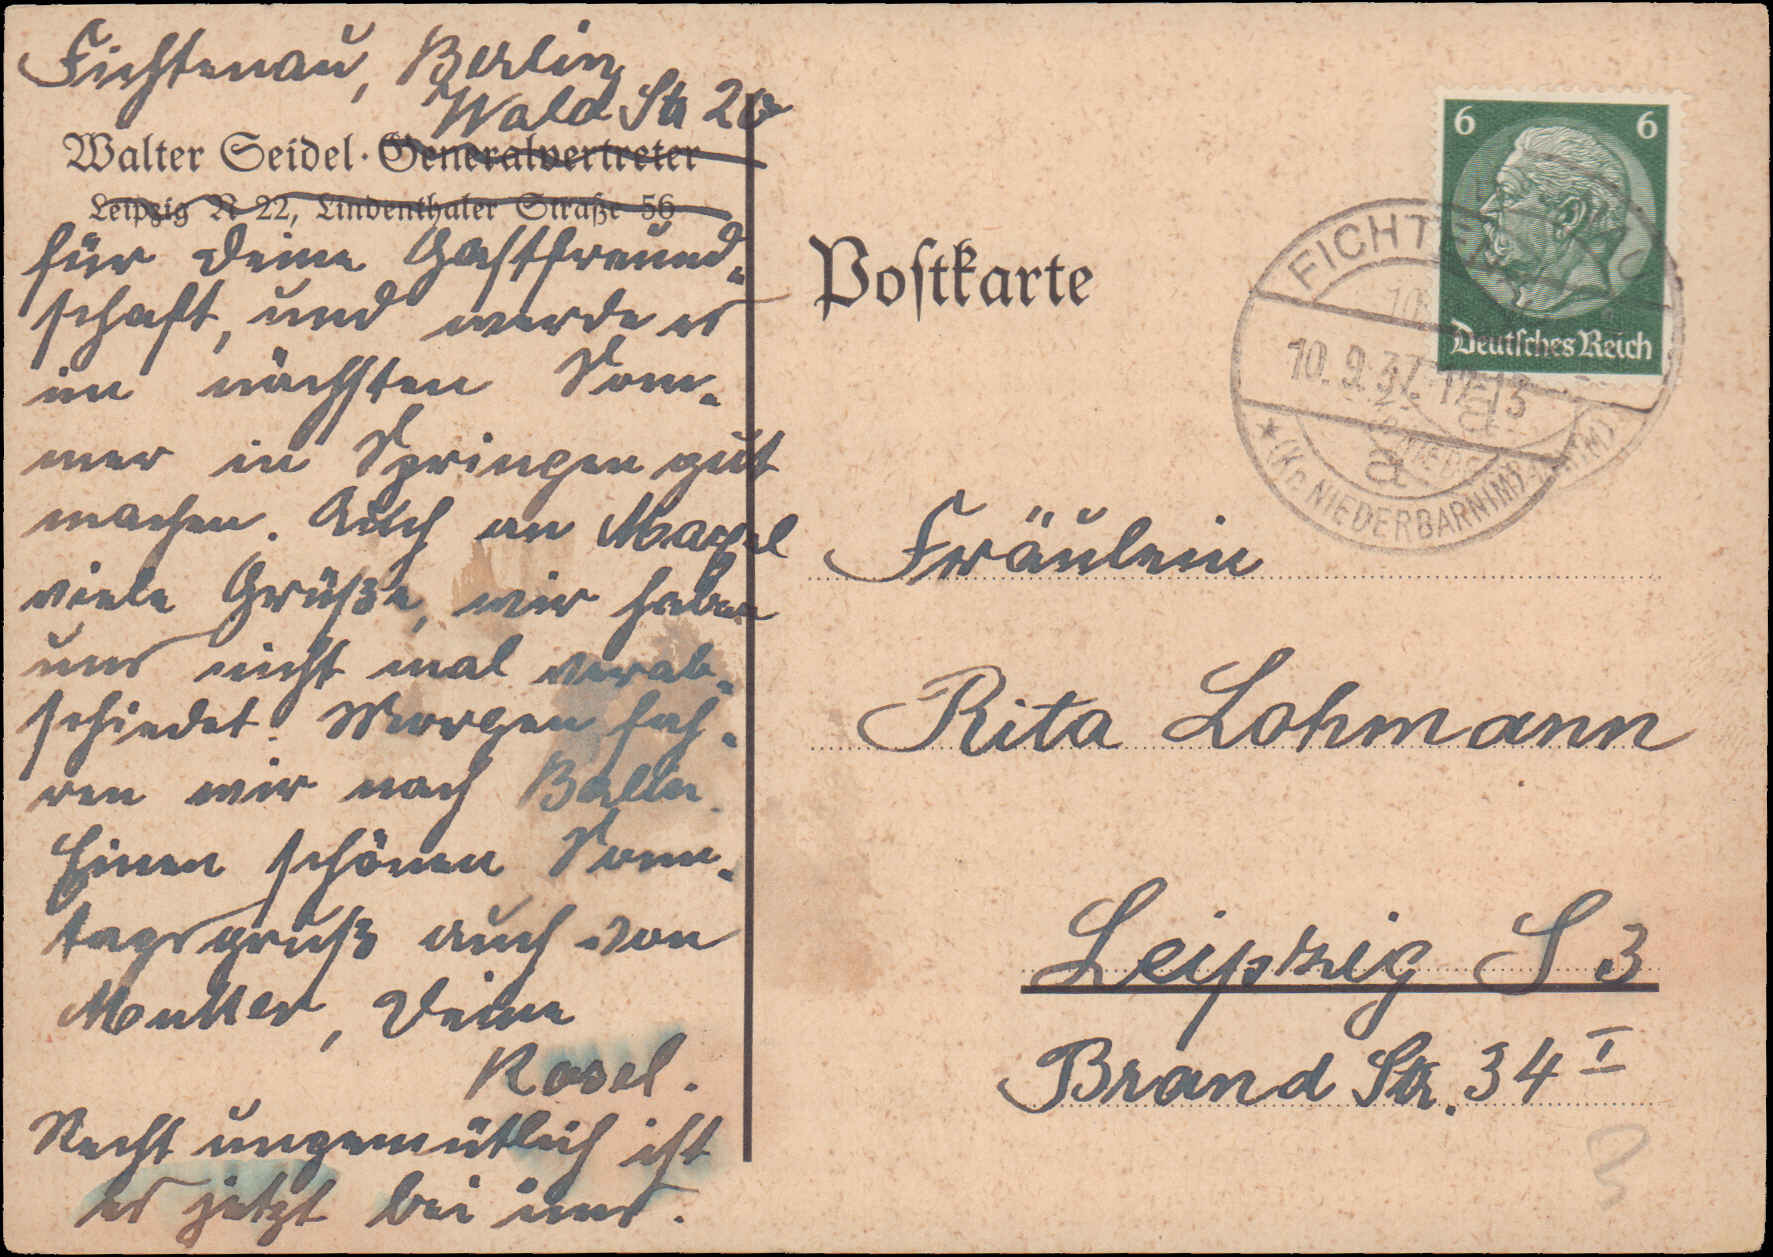 Fichtenau, Berlin
Wald Str 20
Walter Seidel · Generalvertreter
Leipzig N 22, Lindenthaler Straße 56
für Deine Gastfreund-
schaft, und werde es
im nächsten Som-
mer in Springen gut
machen. Auch an
viele Grüße, wir haben
uns nicht mal verab-
schiedet. Morgen fah-
ren wir nach
Einen schönen Sonn-
tagsgruß auch von
Mutter, Deine
Rosel.
Recht ungemütlich ist
es jetzt bei uns.
6 6
Deutsches Reich
10.9.37.
NIEDERBARNIM
Postkarte
Fräulein
Rita Lohmann
Leipzig S 3
Brand Str. 34 I